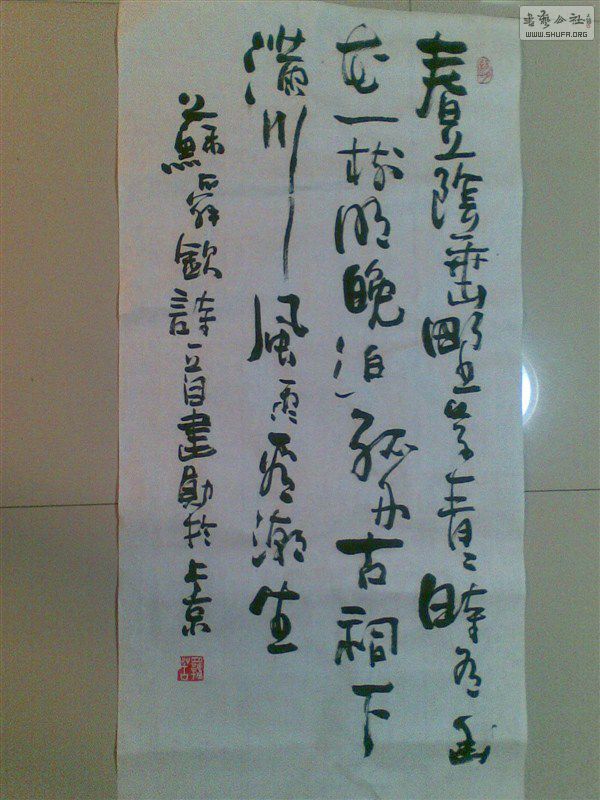 書藝公社
WWW.SHUFA.ORG
春陰垂野草青〻時有幽
花一樹明晚泊孤舟古祠下
滿川風雨看潮生
蘇舜欽詩一首建勛於上京